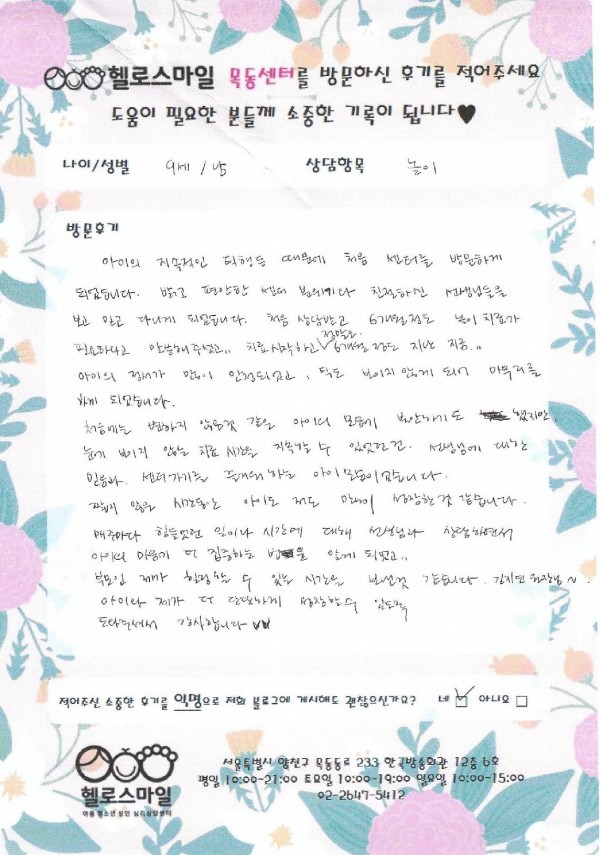 헬로스마일 목동센터를 방문하신 후기를 적어주세요
도움이 필요한 분들께 소중한 기록이 됩니다♥
나이/성별 9세 / 남 상담항목 놀이
방문후기
아이의 지속적인 틱행동 때문에 처음 센터를 방문하게
되었습니다. 밝고 편안한 센터 분위기와 친절하신 선생님들을
보고 믿고 다니게 되었습니다. 처음 상담받고 6개월정도 놀이치료가
필요하다고 말씀해주셨고,, 치료시작하고 정말로 6개월 정도 지난 지금,,
아이의 정서가 많이 안정되었고, 틱도 보이지 않게 되어 마무리를
하게 되었습니다.
처음에는 변하지 않는것 같은 아이의 모습에 불안하기도 했지만,
눈에 보이지 않는 치료시간을 지속할 수 있었던건 선생님에 대한
믿음과 센터가기를 즐거워하는 아이모습이었습니다.
짧지 않은 시간동안 아이도 저도 많이 성장한것 같습니다.
매주마다 힘들었던 일이나 시간에 대해 선생님과 상담하면서
아이의 마음에 더 집중하는 법을 알게 되었고,,
부모인 제가 힐링할 수 있는 시간을 보낸것 같습니다. 김지연 원장님~
아이와 제가 더 단단하게 성장할수 있도록
도와주셔서 감사합니다 ♥♥
적어주신 소중한 후기를 익명으로 저희 블로그에 게시해도 괜찮으신가요? 네 ☑ 아니요 □
헬로스마일
아동 청소년 성인 심리상담센터
서울특별시 양천구 목동동로 233 한국방송회관 12층 6호
평일 10:00-21:00 토요일 10:00-19:00 일요일 10:00-15:00
02-2647-5412